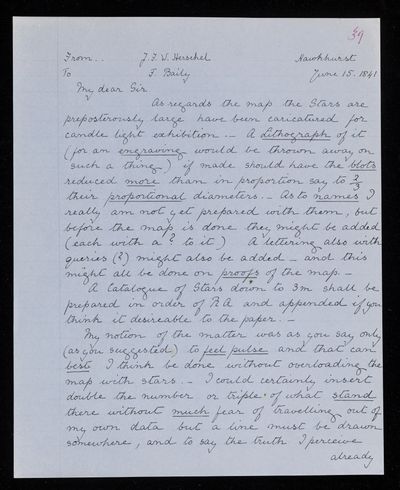 39
From... J. F. W. Herschel Hawkhurst
To F. Baily June 15. 1841
My dear Sir
As regards the map the Stars are
preposterously large have been caricatured for
candle light exhibition. — A Lithograph of it
(for an engraving would be thrown away on
such a thing) if made should have the blots
reduced more than in proportion say to 2/3
their proportional diameters. — As to names I
really am not yet prepared with them, but
before the map is done they might be added
(each with a ? to it) A lettering also with
queries (?) might also be added — and this
might all be done on proofs of the map. —
A Catalogue of Stars down to 3m shall be
prepared in order of RA and appended if you
think it desireable to the paper. . —
My notion of the matter was as you say only
(as you suggested) to feel pulse and that can
best I think be done without overloading the
map with stars. — I could certainly insert
double the number or triple of what stand
there without much fear of travelling out of
my own data but a line must be drawn
somewhere, and to say the truth I perceive
already